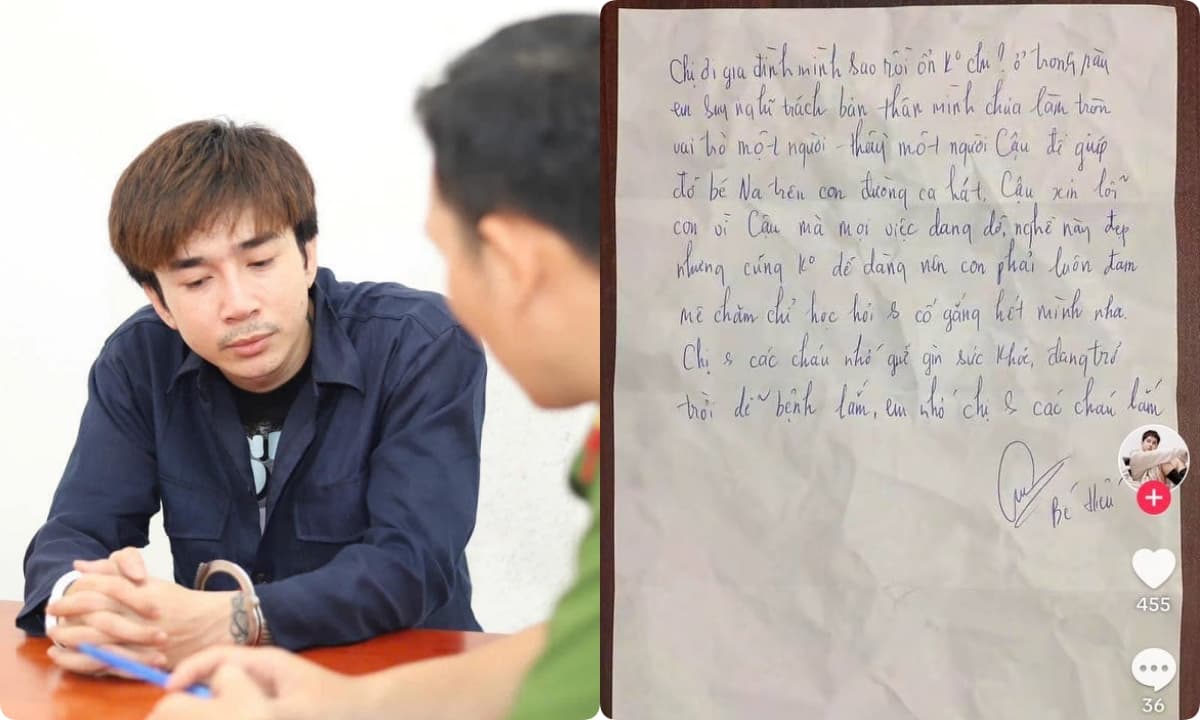 Chị ơi gia đình mình sao rồi ổn k° chị! ở trong này
em suy nghĩ trách bản thân mình chưa làm tròn
vai trò một người thầy một người Cậu để giúp
đỡ bé Na trên con đường ca hát. Cậu xin lỗi
con vì Cậu mà mọi việc dang dở, nghề này đẹp
nhưng cũng k° dễ dàng nên con phải luôn đam
mê chăm chỉ học hỏi & cố gắng hết mình nha.
Chị & các cháu nhớ giữ gìn sức khỏe, đang trở
trời dễ bệnh lắm, em nhớ chị & các cháu lắm
Bé
455
36